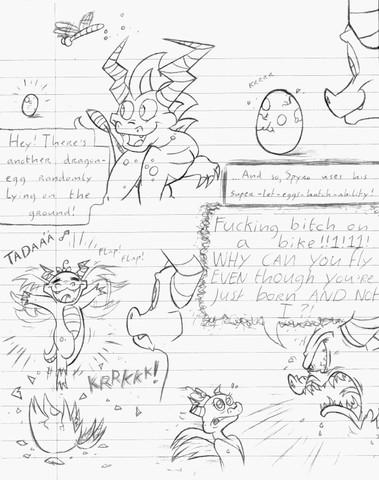 KRRRR
Hey! There's
another dragon-
egg randomly
lying on the
ground!
And so, Spyro uses his
super-let-eggs-hatch-ability!
TADAAA
Flap!
Flap!
Fucking bitch on
a bike!!1!11!
WHY CAN you fly
EVEN though you're
just born AND NOT
I?!
KRRKKK!